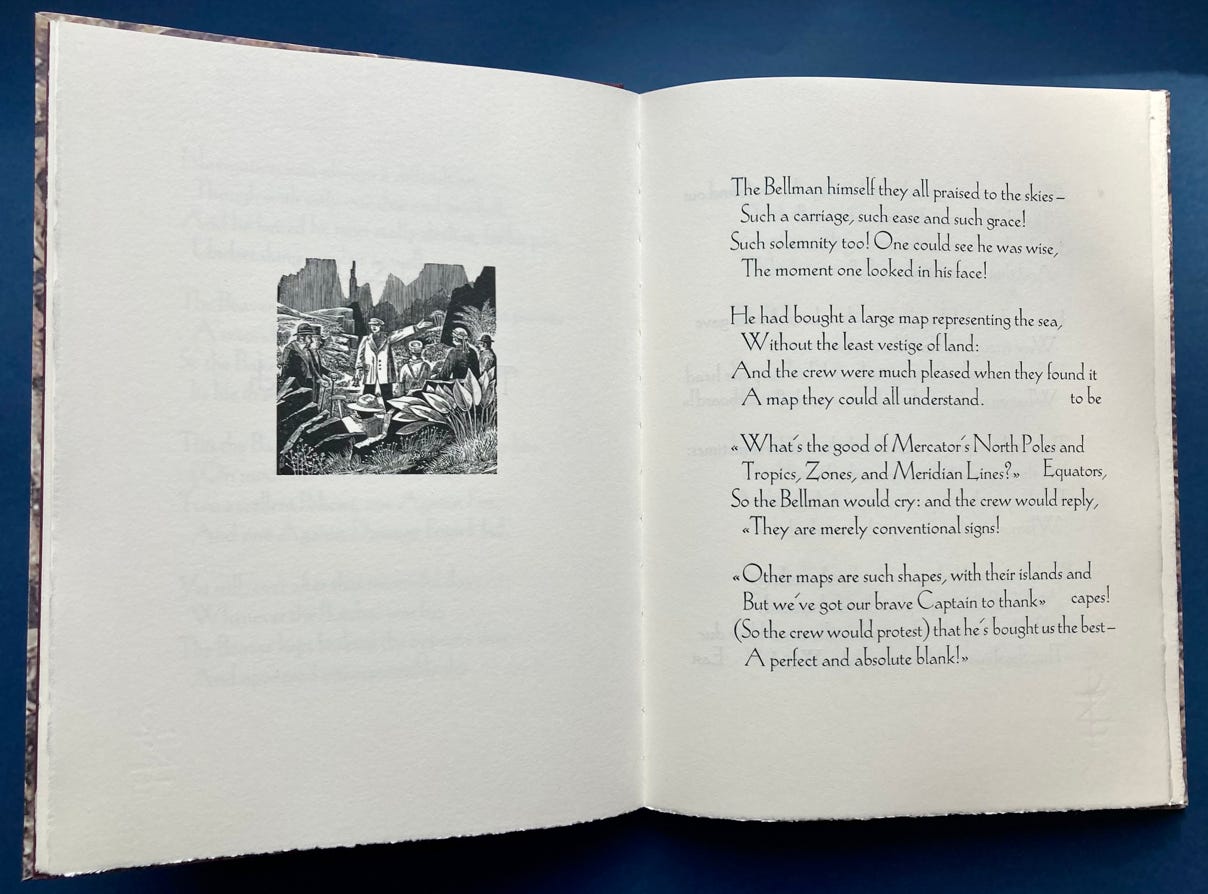 The Bellman himself they all praised to the skies –
Such a carriage, such ease and such grace!
Such solemnity too! One could see he was wise,
The moment one looked in his face!
He had bought a large map representing the sea,
Without the least vestige of land:
And the crew were much pleased when they found it
A map they could all understand. to be
«What's the good of Mercator's North Poles and
Tropics, Zones, and Meridian Lines?» Equators,
So the Bellman would cry: and the crew would reply,
«They are merely conventional signs!
«Other maps are such shapes, with their islands and
But we've got our brave Captain to thank» capes!
(So the crew would protest) that he's bought us the best –
A perfect and absolute blank!»